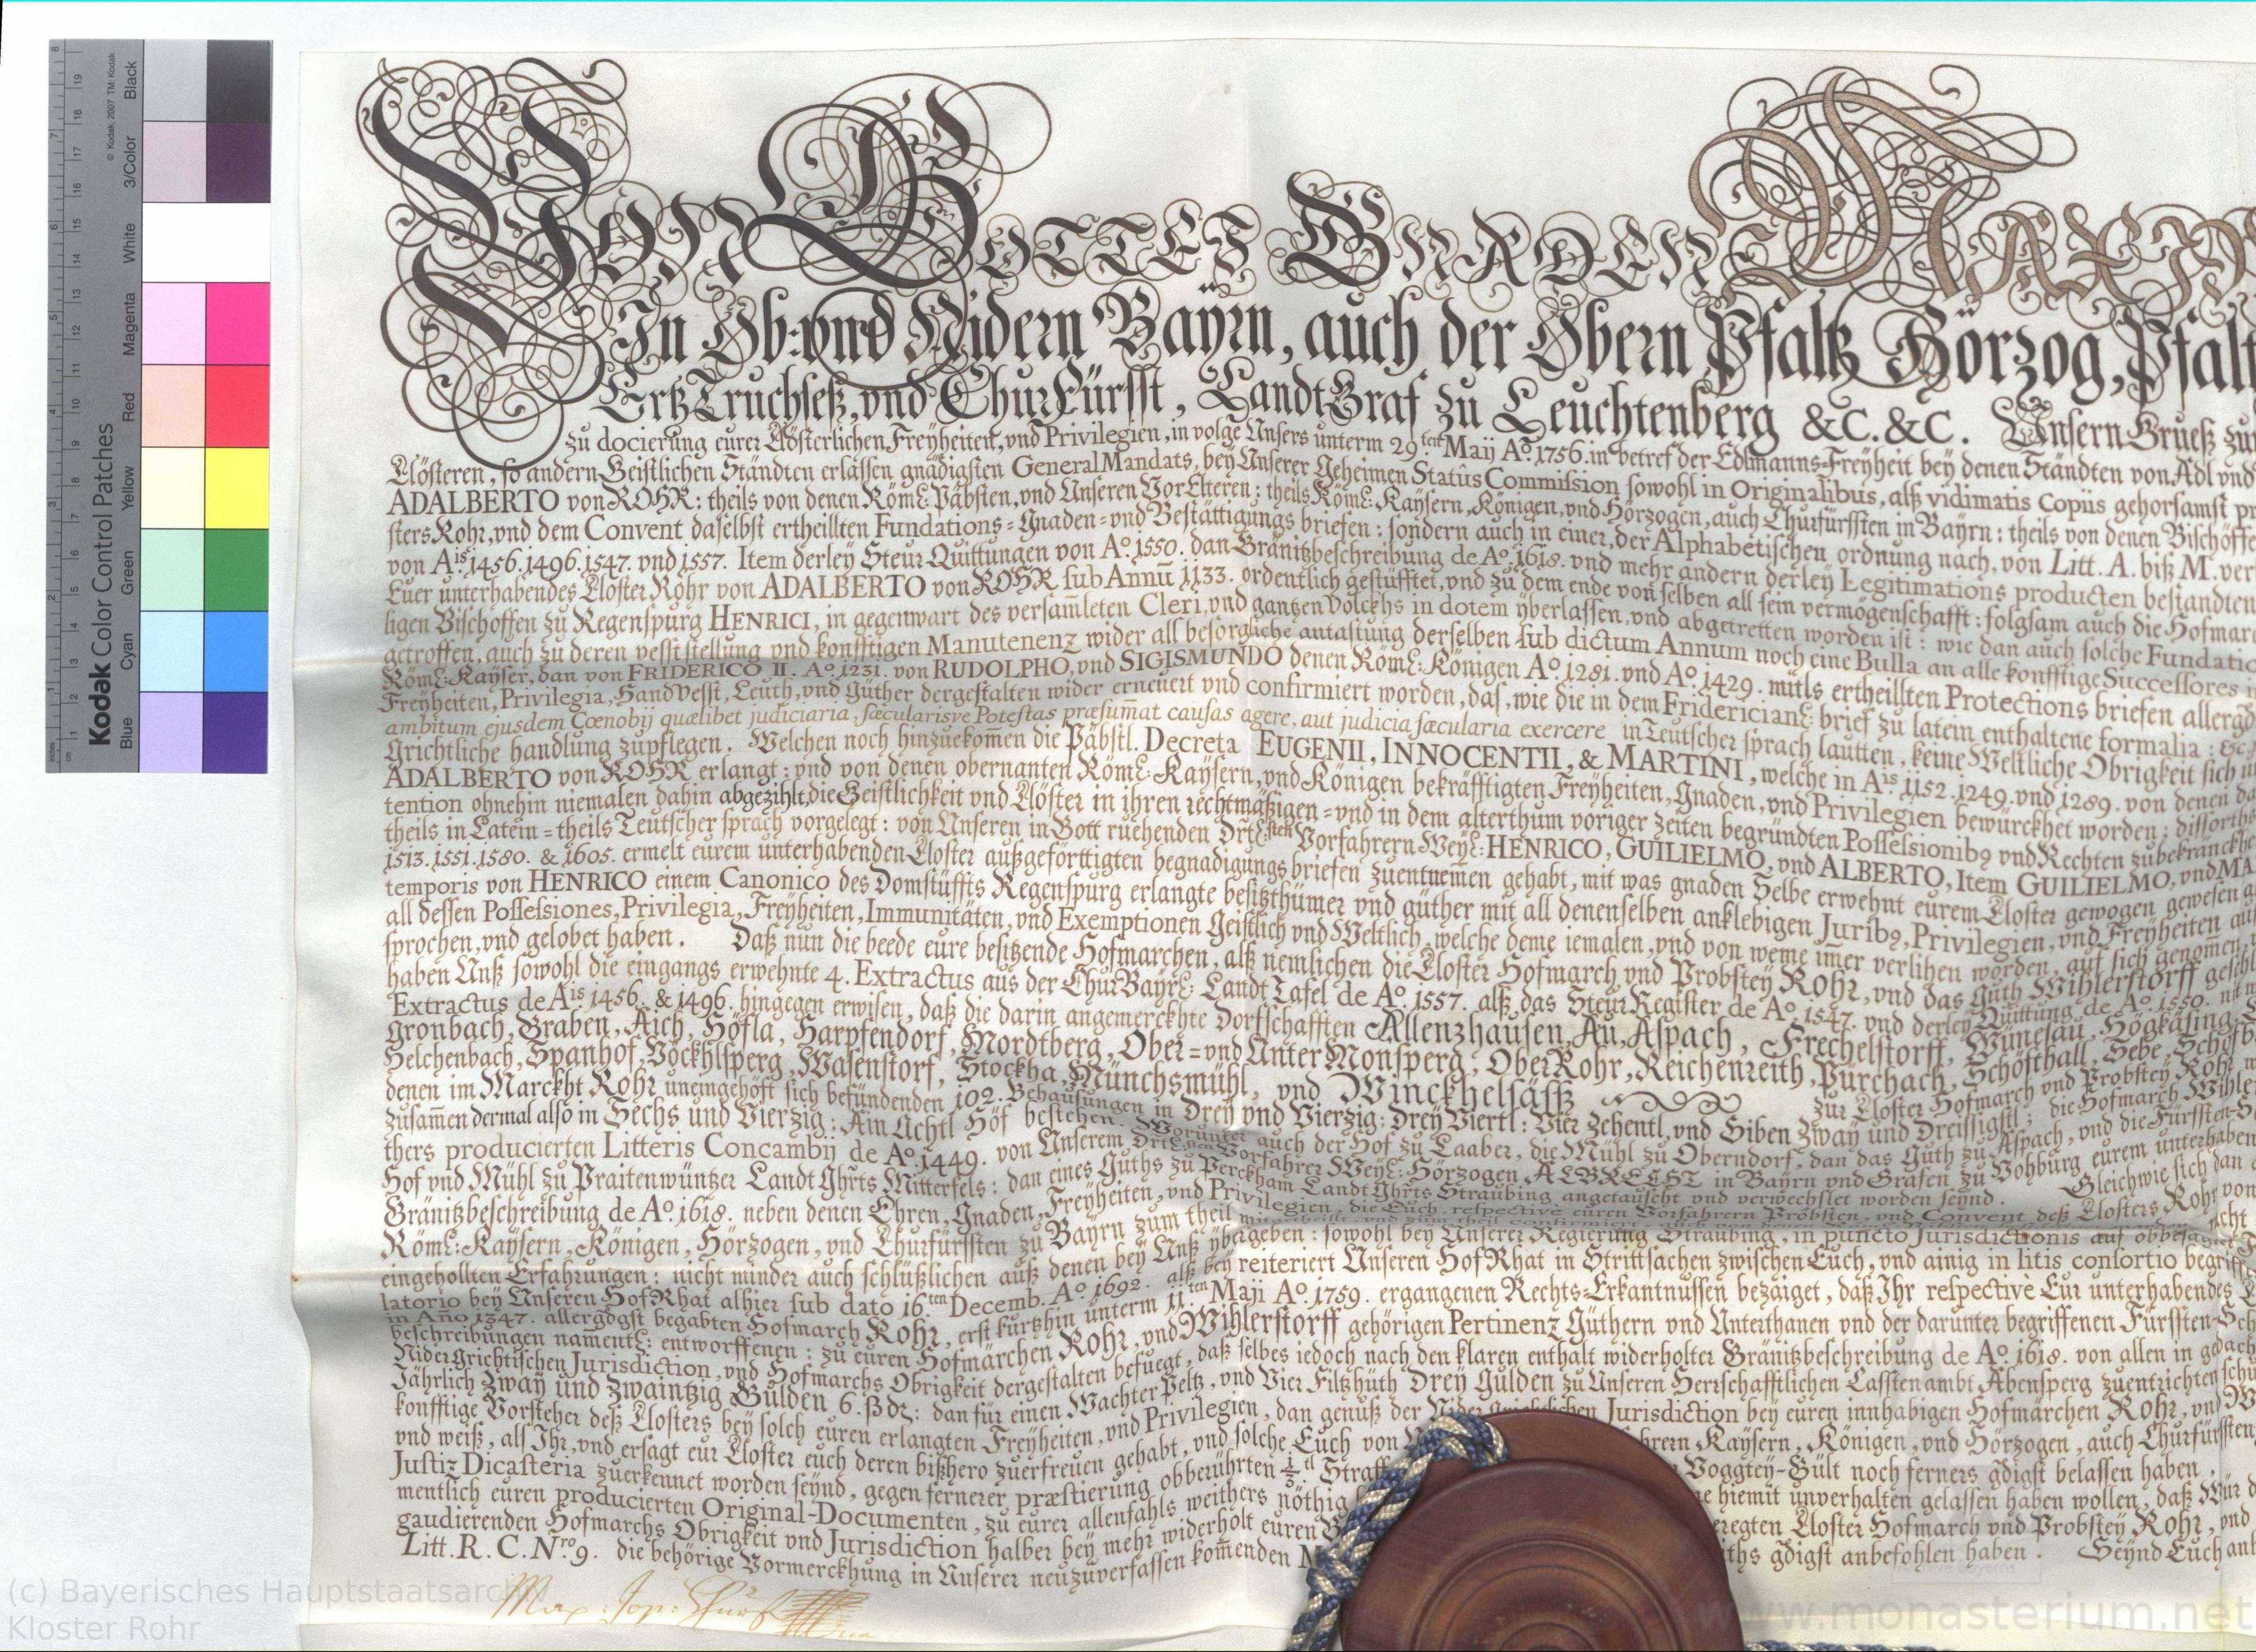 Von Gottes Gnaden Maxim
In Ob: vnd Nidern Bayrn, auch der Obern Pfaltz Hörzog, Pfaltz
Ertz Truchseß, vnd ChurFürsst, LandtGraf zu Leuchtenberg &c. &c. Unsern Grueß zu
zu docierung eurer Clösterlichen Freyheiten, vnd Privilegien, in volge Unsers unterm 29.ten Maij Aº. 1756. in betref der Edlmanns-Freyheit bey denen Ständten von Adl vnd
Clösteren, so andern Geistlichen Ständten erlassen gnädigsten General Mandats, bey Unserer Geheimen Statûs Commission sowohl in Originalibus, alß vidimatis Copiis gehorsamst pr
ADALBERTO von ROHR: theils von denen Röml: Päbsten, vnd Unseren VorElteren: theils Röml: Kaysern, Königen, vnd Hörzogen, auch Churfürssten in Bayrn: theils von denen Bischöffe
sters Rohr, vnd dem Convent daselbst ertheillten Fundations-Gnaden- vnd Bestättigungs briefen: sondern auch in einer, der Alphabetischen ordnung nach, von Litt. A. biß M. ver
von Ais. 1456. 1496. 1547. vnd 1557. Item derley Steur-Quittungen von Aº. 1550. dan Gränitzbeschreibung de Aº. 1618. vnd mehr andern derley Legitimations producten bestandten
Euer unterhabendes Closter Rohr von ADALBERTO von ROHR sub Annũ 1133. ordentlich gestüfftet, vnd zu dem ende von selben all sein vermögenschafft: folgsam auch die Hofmar
ligen Bischoffen zu Regenspurg HENRICI, in gegenwart des versam̃leten Cleri, vnd gantzen Volckhs in dotem yberlassen, vnd abgetretten worden ist: wie dan auch solche Fundatio
getroffen, auch zu deren vesststellung vnd konfftigen Manutenenz wider all besorgliche antastung derselben sub dictum Annum noch eine Bulla an alle konfftige Successores
Röml: Kayser, dan von FRIDERICO II. Aº. 1231. von RUDOLPHO, vnd SIGISMUNDO denen Röml: Königen Aº. 1281. vnd Aº. 1429. mitls ertheillten Protections briefen allergd
Freyheiten, Privilegia, Handvesst, Leuth, vnd Güther dergestalten wider erneuert vnd confirmiert worden, das, wie die in dem Fridericianl: brief zu latein enthaltene formalia: &c.
ambitum ejusdem Cœnobij quælibet judiciaria, sæcularisve Potestas præsum̃at causas agere, aut judicia sæcularia exercere in Teutscher sprach lautten, keine Weltliche Obrigkeit sich
Grichtliche handlung zupflegen. Welchen noch hinzuekom̃en die Päbstl. Decreta EUGENII, INNOCENTII, & MARTINI, welche in Ais. 1152. 1249. vnd 1289. von denen da
ADALBERTO von ROHR erlangt: vnd von denen obernanten Röml: Kaysern, vnd Königen bekräfftigten Freyheiten, Gnaden, vnd Privilegien bewürckhet worden: dissorths
tention ohnehin niemalen dahin abgezihlt, die Geistlichkeit vnd Clöster in ihren rechtmäßigen- vnd in dem alterthum voriger zeiten begründten Possessionib9 vnd Rechten zubekränckhe
theils in Latein- theils Teutscher sprach vorgelegt: von Unseren in Gott ruehenden Drtl.sten Vorfahrern Weyl: HENRICO, GUILIELMO, vnd ALBERTO, Item GUILIELMO, vnd MA
1513. 1551. 1580. & 1605. ermelt eurem unterhabenden Closter außgeförttigten begnadigungs briefen zuentnem̃en gehabt, mit was gnaden Selbe erwehnt eurem Closter gewogen gewesen
temporis von HENRICO einem Canonico des Domstüffts Regenspurg erlangte besitzthümer vnd güther mit all denenselben anklebigen Jurib9, Privilegien, vnd Freyheiten auf
all dessen Possessiones, Privilegia, Freyheiten, Immunitäten, vnd Exemptionen Geistlich vnd Weltlich, welche deme iemalen, vnd von weme im̃er verlihen worden, auf sich genom̃en
sprochen, vnd gelobet haben. Daß nun die beede eure besitzende Hofmarchen, alß nemlichen die Closter Hofmarch vnd Probstey Rohr, vnd das Guth Wihlerstorff
haben Unß sowohl die eingangs erwehnte 4. Extractus aus der ChurBayrl: Landt Tafel de Aº. 1557. alß das Steyr Register de Aº. 1547. vnd derley Quittung de Aº. 1550.
Extractus de Ais. 1456. & 1496. hingegen erwisen, daß die darin angemerckhte Dorfschafften Allenzhausen, Au, Aspach, Frechelstorff, Wünesau, Högkäsing,
Gronbach, Graben, Aich, Höfla, Harpfendorf, Mordtberg, Ober- vnd Unter Monsperg, Ober Rohr, Reichenreith, Pürchach, Schöfthall, Sebe,
Helchenbach, Spanhof, Vöckhlsperg, Wasenstorf, Stockha, Münchsmühl, vnd Winckhelsäss zur Closter Hofmarch vnd Probstey Rohr
denen im Marckht Rohr uneingehöft sich befündenden 102. Behausungen in Drey vnd Vierzig: Drey Viertl: Vier Zehentl, vnd Siben Zway und Dreissigstl; die Hofmarch Wihler
zusam̃en dermal also in Sechs und Vierzig: Ain Achtl Höf bestehen. Worunter auch der Hof zu Laaber, die Mühl zu Oberndorf, dan das Guth zu Aspach, vnd die Fürssten
thers producierten Litteris Concambij de Aº. 1449. von Unserem Drtl. Vorfahrer Weyl: Hörzogen ALBRECHT in Bayrn vnd Grafen zu Vohburg eurem unterhaben
Hof vnd Mühl zu Praitenwüntzer Landt Ghrts Mitterfels: dan eines Guths zu Perckham Landt Ghrts Straubing angetauscht vnd verwechslet worden seynd. Gleichwie sich dan
Gränitzbeschreibung de Aº. 1618. neben denen Ehren, Gnaden, Freyheiten, vnd Privilegien, die Euch, respective euren Vorfahrern Pröbsten, vnd Convent deß Closters Rohr von
Röml: Kaysern, Königen, Hörzogen, vnd Churfürssten zu Bayrn zum theil
eingehollten Erfahrungen: nicht münder auch schlüßlichen auß denen bey Unß ybergeben: sowohl bey Unserer Regierung Straubing, in puncto Jurisdictionis auf obbesagter
latorio bey Unseren HofRhat alhier sub dato 16.ten Decemb. Aº. 1692. alß bey reiteriert Unseren HofRhat in Strittsachen zwischen Euch, vnd ainig in litis consortio begriff
in Año 1347. allergdgst begabten Hofmarch Rohr, erst kurtzhin unterm 11.ten Maji Aº. 1759. ergangenen Rechts-Erkantnussen bezaiget, daß Ihr respectivè Eur unterhabendes
beschreibungen namentl: entworffenen: zu euren Hofmärchen Rohr, vnd Wihlerstorff gehörigen Pertinenz Güthern vnd Unterthanen vnd der darunter begriffenen Fürssten
Nidergrichtischen Jurisdiction, vnd Hofmarchs Obrigkeit dergestalten befuegt, daß selbes iedoch nach den klaren enthalt widerholter Gränitzbeschreibung de Aº. 1618. von allen in gedach
Jährlich Zway und Zwaintzig Gulden 6. ß dr: dan für einen Wachter Peltz, vnd Vier Filtzhüth Drey Gulden zu Unseren Herrschafftlichen Casstenambt Abensperg zuentrichten schu
konfftige Vorsteher deß Closters bey solch euren erlangten Freyheiten, vnd Privilegien, dan genuß der Jurisdiction bey euren innhabigen Hofmärchen Rohr, vnd W
vnd weiß, alß Ihr, vnd ersagt eur Closter euch deren bißhero zuerfreuen gehabt, vnd solche Euch von hrern Kaysern, Königen, vnd Hörzogen, auch Churfürssten
Justiz Dicasteria zuerkennet worden seynd, gegen fernerer præstierung obberührten 1/3.tl Straff Voggtey-Gült noch ferners gdigst belassen haben.
mentlich euren producierten Original-Documenten, zu eurer allenfahls weithers nöthig hiemit unverhalten gelassen haben wollen, daß Wür
gaudierenden Hofmarchs Obrigkeit vnd Jurisdiction halber bey mehr widerholt euren eregten Closter Hofmarch vnd Probstey Rohr, vnd
Litt. R. C. N.ro 9. die behörige Vormerckhung in Unserer neuzuverfassen kom̃enden iths gdigst anbefohlen haben. Seynd Euch
Max: Jos: Churfürst
Kodak Color Control Patches
© Kodak, 2007 TM: Kodak
Blue Cyan Green Yellow Red Magenta White 3/Color Black
(c) Bayerisches Hauptstaatsarchiv
Kloster Rohr
www.monasterium.net